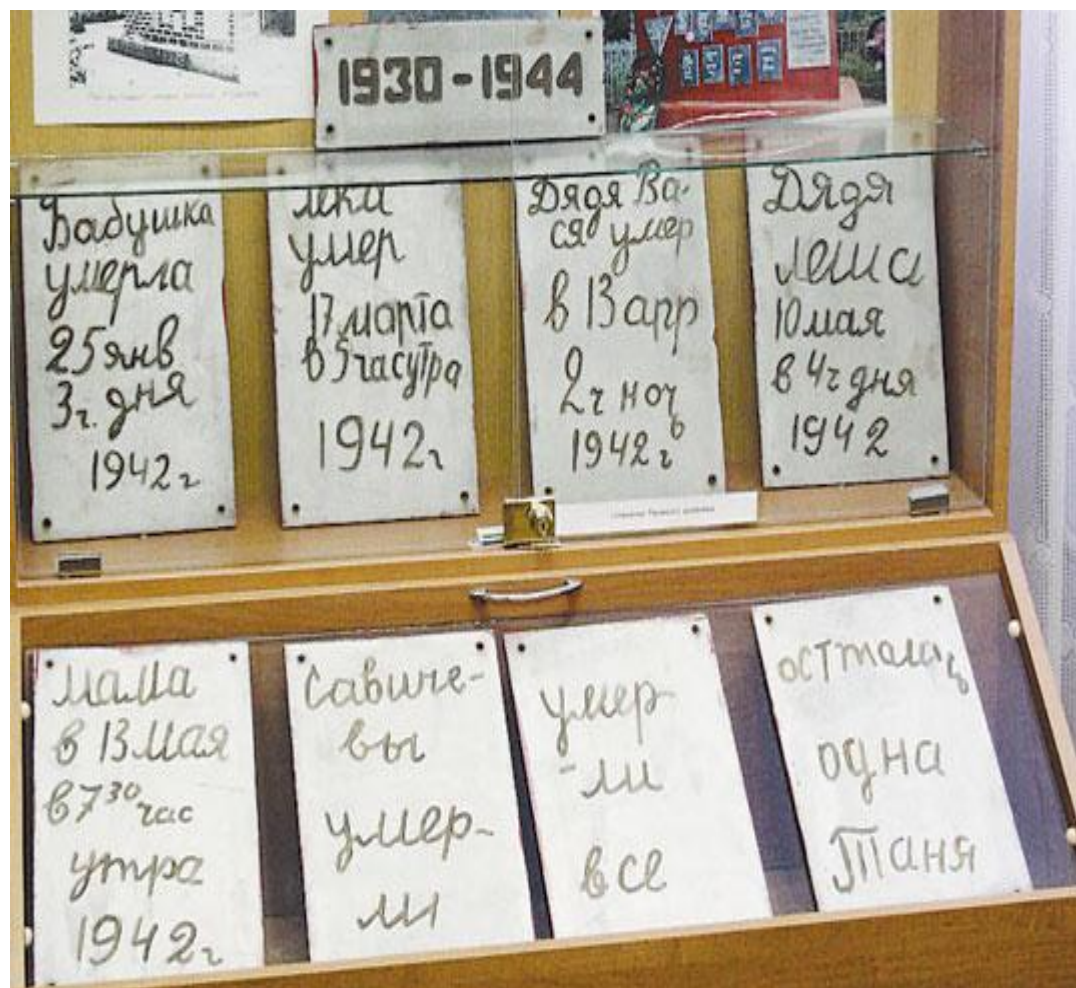 1930-1944
Бабушка
умерла
25 янв
3г. дня
1942г
Лека
умер
17 марта
в 5 час утра
1942г
Дядя Ва-
ся умер
в 13 апр
2ч ночь
1942г
Дядя
Леша
10 мая
в 4ч дня
1942
Мама
в 13 мая
в 7 30 час
утра
1942г
Савиче-
вы
умер-
ли
умер-
-ли
все
осталась
одна
Таня